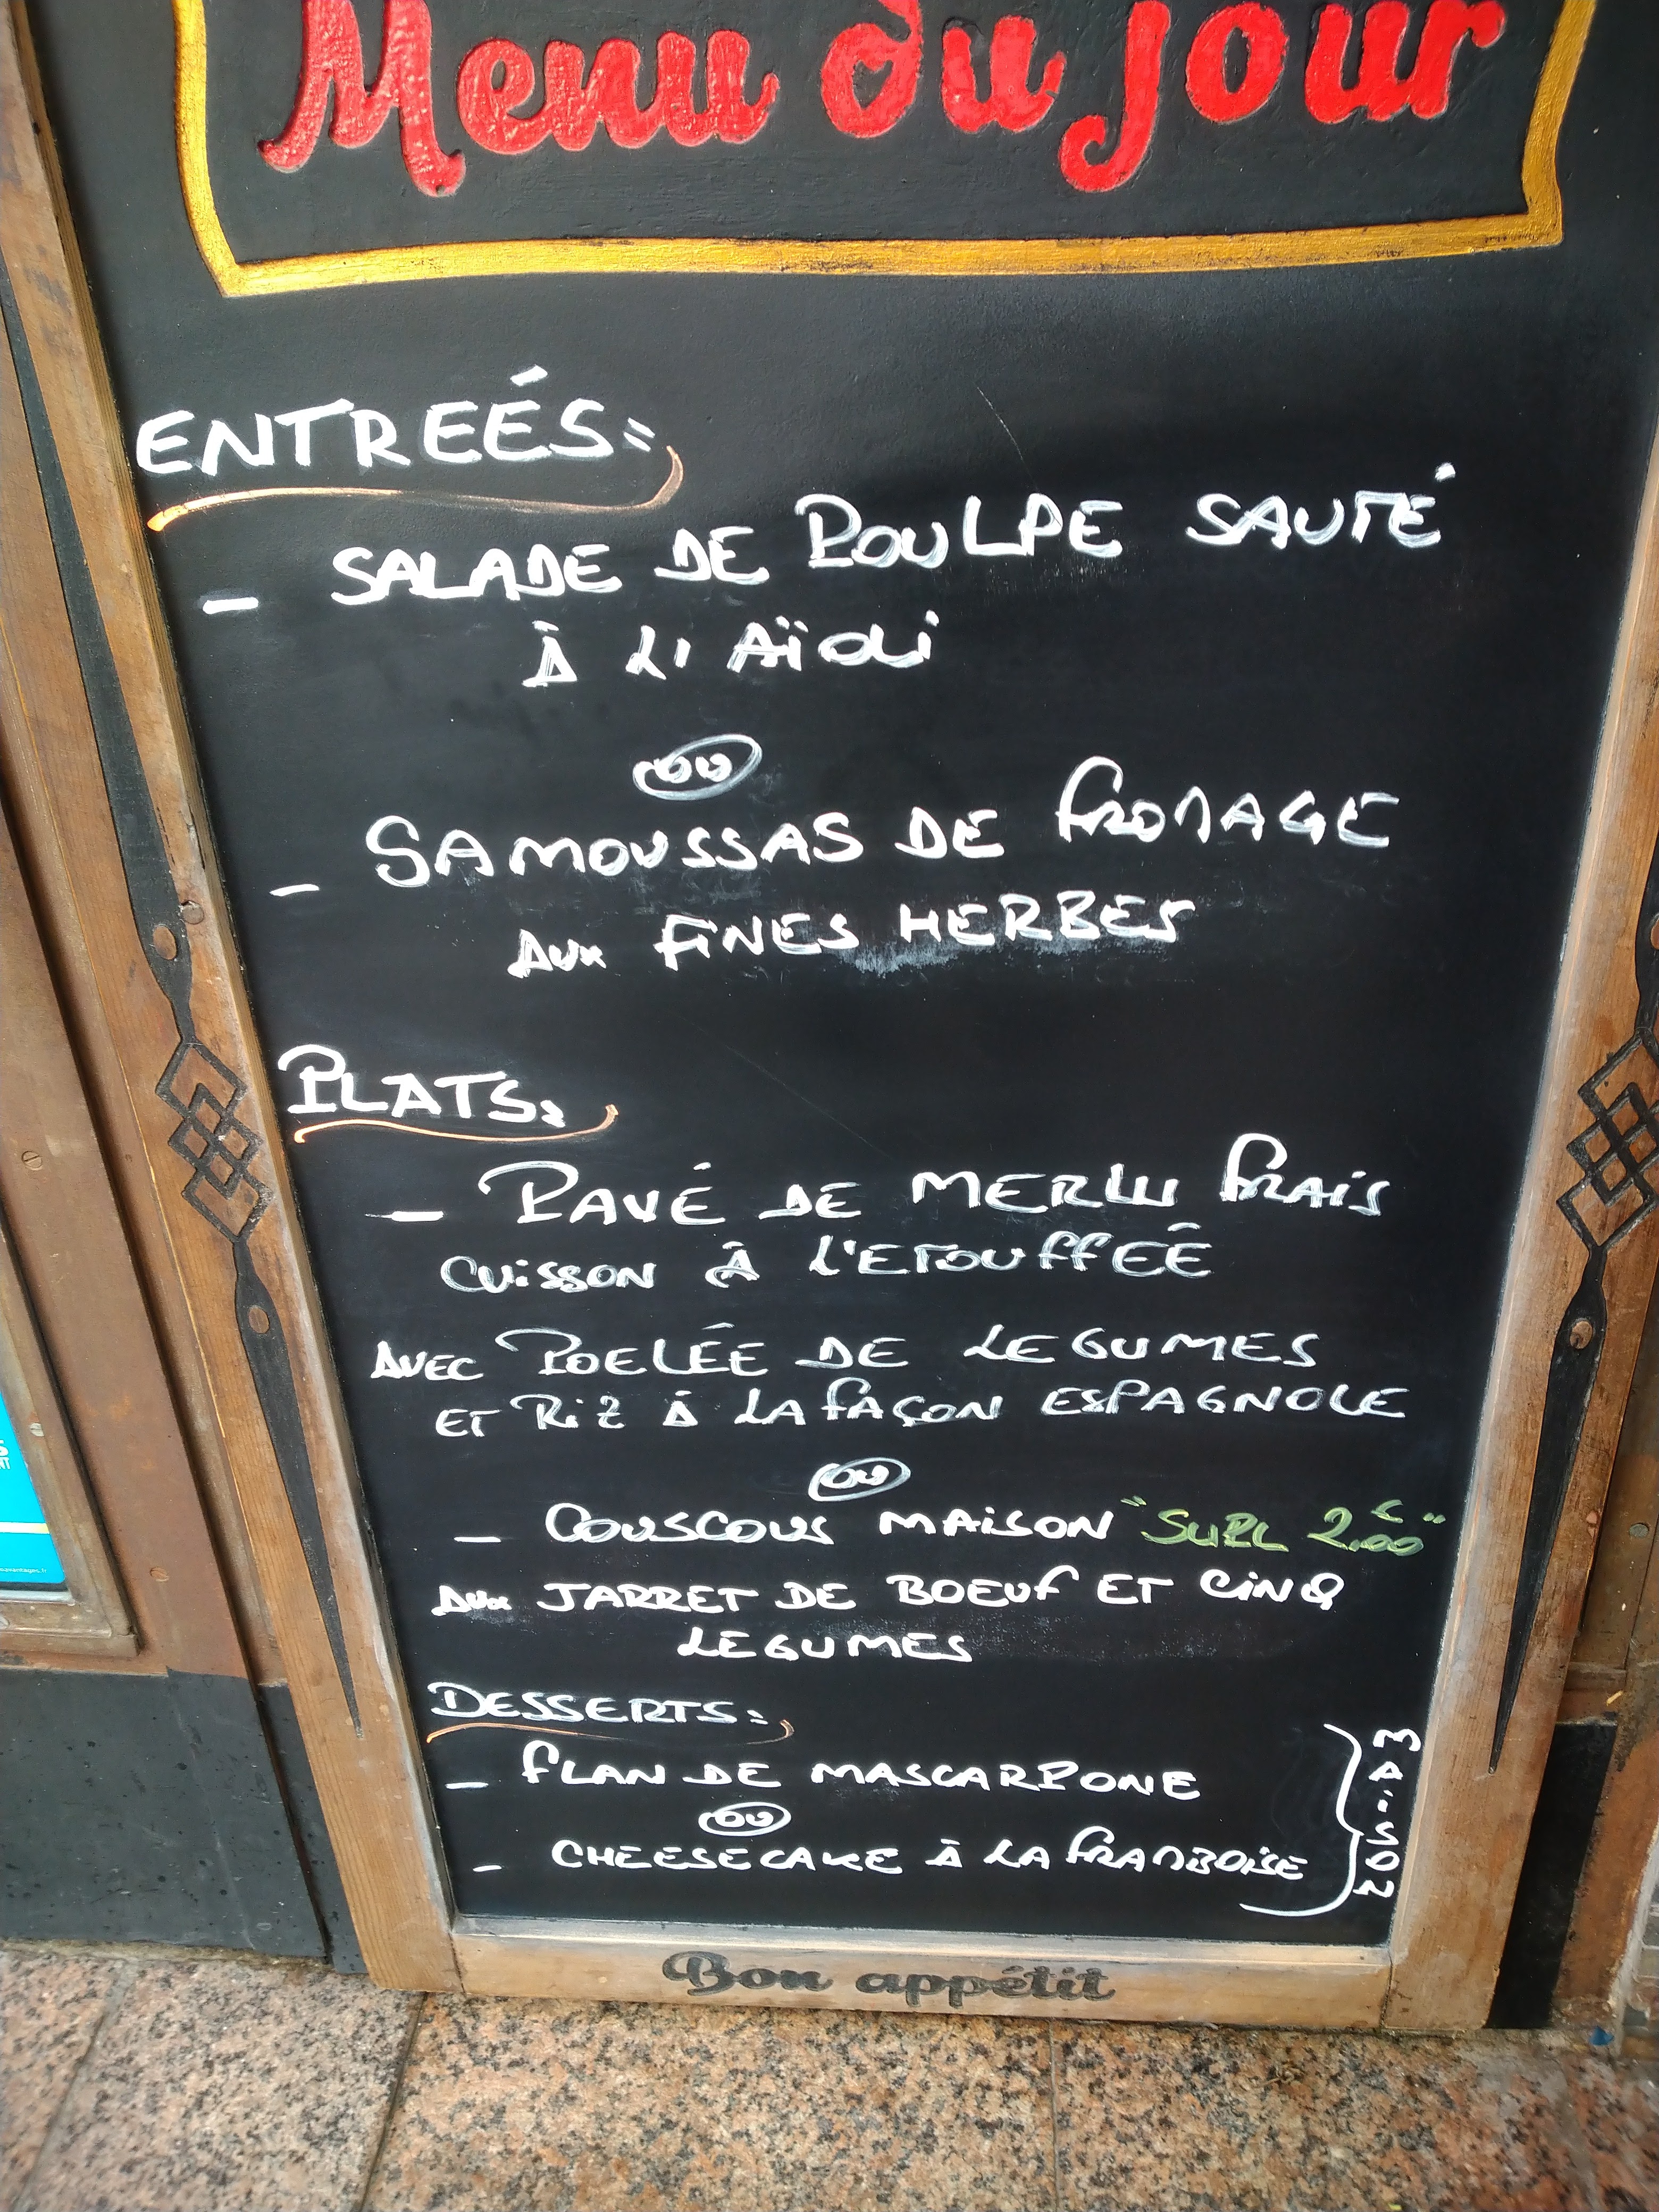 Menu du jour
ENTREÉS:
- SALADE DE POULPE SAUTÉ
À L'AÏOLI
OU
- SAMOUSSAS DE FROMAGE
AUX FINES HERBES
PLATS:
- PAVÉ DE MERLU FRAIS
CUISSON À L'ETOUFFEÉ
AVEC POELÉE DE LEGUMES
ET RIZ À LA FAÇON ESPAGNOLE
OU
- COUSCOUS MAISON "SUPL 2.00€"
AUX JARRET DE BOEUF ET CINQ
LEGUMES
DESSERTS:
- FLAN DE MASCARPONE
OU
- CHEESECAKE À LA FRAMBOISE
MAISON
Bon appétit